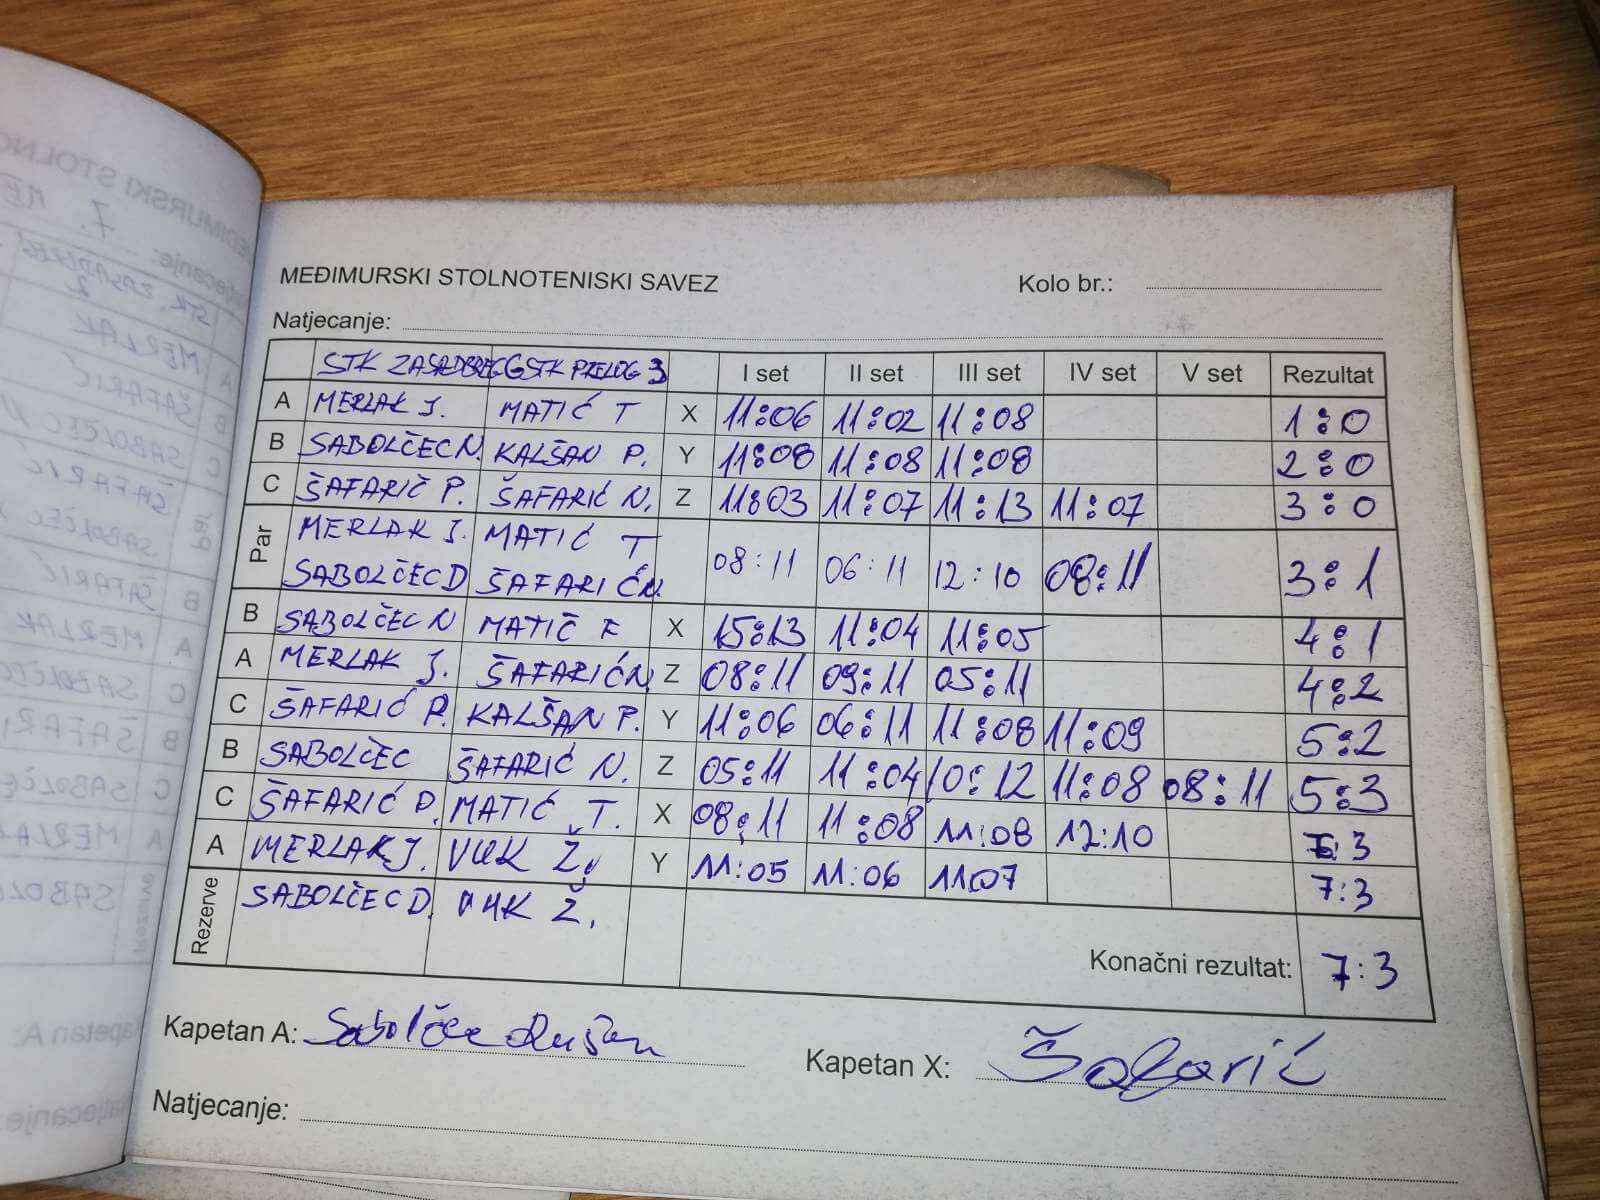 MEĐIMURSKI STOLNOTENISKI SAVEZ Kolo br.:
Natjecanje:
STK ZASADBREG STK PRELOG 3 I set II set III set IV set V set Rezultat
A MERLAK J. MATIĆ T X 11:06 11:02 11:08 1:0
B SABOLČEC N. KALŠAN P. Y 11:08 11:08 11:08 2:0
C ŠAFARIČ P. ŠAFARIĆ N. Z 11:03 11:07 11:13 11:07 3:0
Par MERLAK J. MATIĆ T
SABOLČEC D ŠAFARIĆ N. 08:11 06:11 12:10 08:11 3:1
B SABOLČEC N MATIČ F X 15:13 11:04 11:05 4:1
A MERLAK J. ŠAFARIĆ N. Z 08:11 09:11 05:11 4:2
C ŠAFARIĆ P. KALŠAN P. Y 11:06 06:11 11:08 11:09 5:2
B SABOLČEC ŠAFARIĆ N. Z 05:11 11:04 10:12 11:08 08:11 5:3
C ŠAFARIĆ P. MATIĆ T. X 08:11 11:08 11:08 12:10 6:3
A MERLAK J. VUK Ž. Y 11:05 11:06 11:07 7:3
Rezerve SABOLČEC D. VUK Ž.
Konačni rezultat: 7:3
Kapetan A: Sabolčec Dušan Kapetan X: Šafarić
Natjecanje: